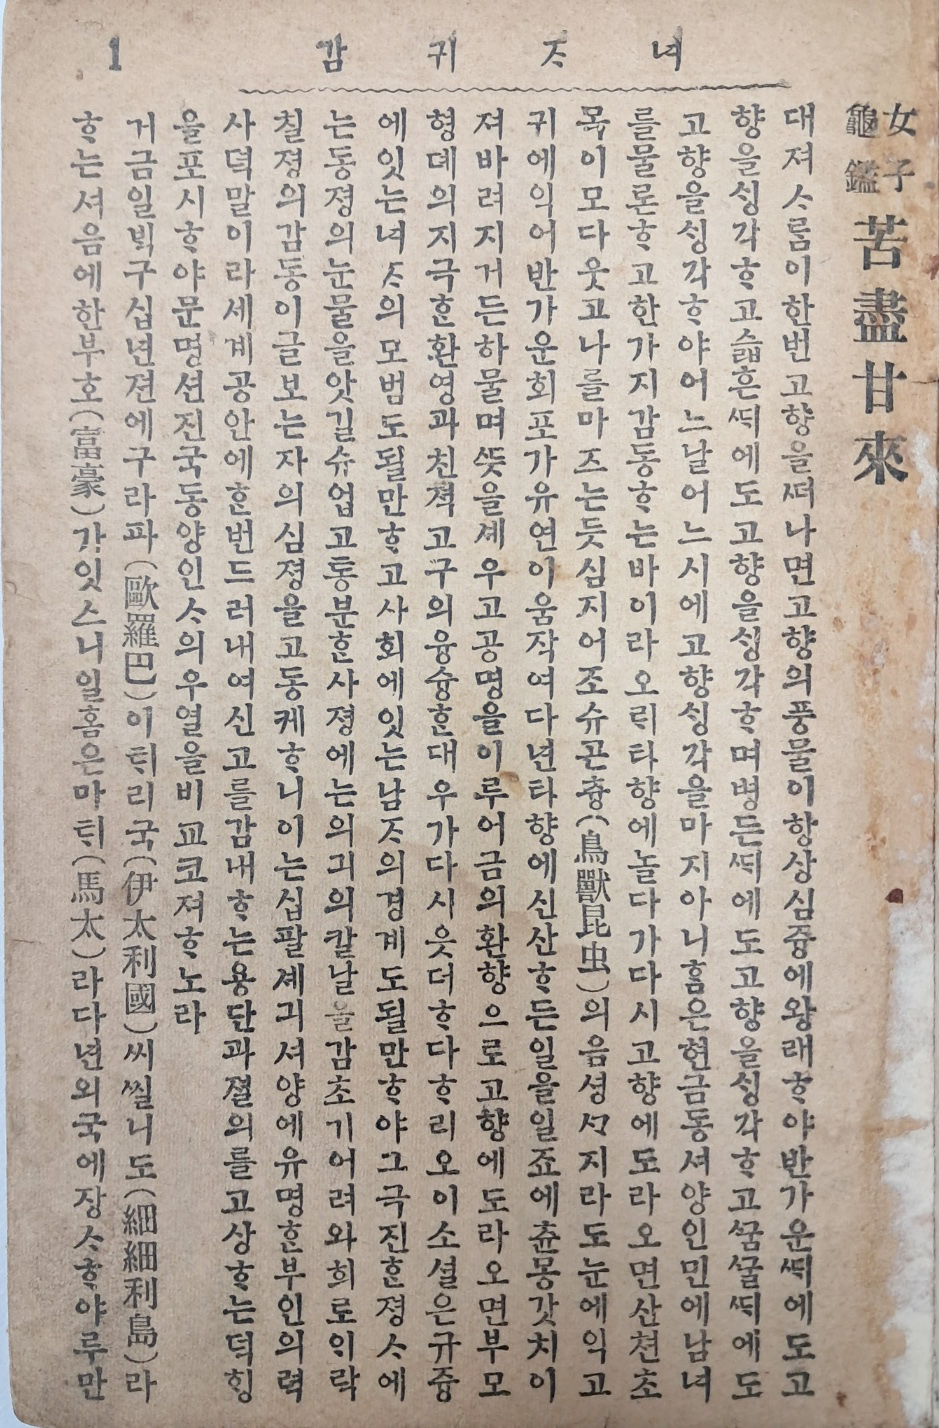 녀ᄌᆞ귀감 1
女子龜鑑 苦盡甘來
대져ᄉᆞᄅᆞᆷ이한번고향을ᄯᅥ나면고향의풍물이항상심즁에왕래ᄒᆞ야반가운ᄯᆡ에도고
향을ᄉᆡᆼ각ᄒᆞ고슯흔ᄯᆡ에도고향을ᄉᆡᆼ각ᄒᆞ며병든ᄯᆡ에도고향을ᄉᆡᆼ각ᄒᆞ고ᄭᅮᆷᄭᅮᆯᄯᆡ에도
고향을ᄉᆡᆼ각ᄒᆞ야어느날어느시에고향ᄉᆡᆼ각을마지아니ᄒᆞᆷ은현금동셔양인민에남녀
를물론ᄒᆞ고한가지감동ᄒᆞ는바이라오ᄅᆡ타향에놀다가다시고향에도라오면산쳔초
목이모다웃고나를마즈는듯심지어조슈곤츙(鳥獸昆虫)의음셩ᄭᆞ지라도눈에익고
귀에익어반가운회포가유연이움작여다년타향에신산ᄒᆞ든일을일죠에츈몽갓치이
져바려지거든하물며ᄯᅳᆺ을셰우고공명을이루어금의환향으로고향에도라오면부모
형뎨의지극ᄒᆞᆫ환영과친쳑고구의융슝ᄒᆞᆫ대우가다시읏더ᄒᆞ다ᄒᆞ리오이소셜은규즁
에잇는녀ᄌᆞ의모범도될만ᄒᆞ고사회에잇는남ᄌᆞ의경계도될만ᄒᆞ야그극진ᄒᆞᆫ졍ᄉᆞ에
는동졍의눈물을앗길슈업고통분ᄒᆞᆫ사졍에는의긔의칼날을감초기어려와희로ᄋᆡ락
칠졍의감동이글보는자의심졍을고동케ᄒᆞ니이는십팔셰긔셔양에유명ᄒᆞᆫ부인의력
사덕말이라세계공안에ᄒᆞᆫ번드러내여신고를감내ᄒᆞ는용단과졀의를고상ᄒᆞ는덕ᄒᆡᆼ
을포시ᄒᆞ야문명션진국동양인ᄉᆞ의우열을비교코져ᄒᆞ노라
거금일ᄇᆡᆨ구십년젼에구라파(歐羅巴)이ᄐᆡ리국(伊太利國)씨씰니도(細細利島)라
ᄒᆞ는셔음에한부호(富豪)가잇스니일홈은마ᄐᆡ(馬太)라다년외국에장ᄉᆞᄒᆞ야루만